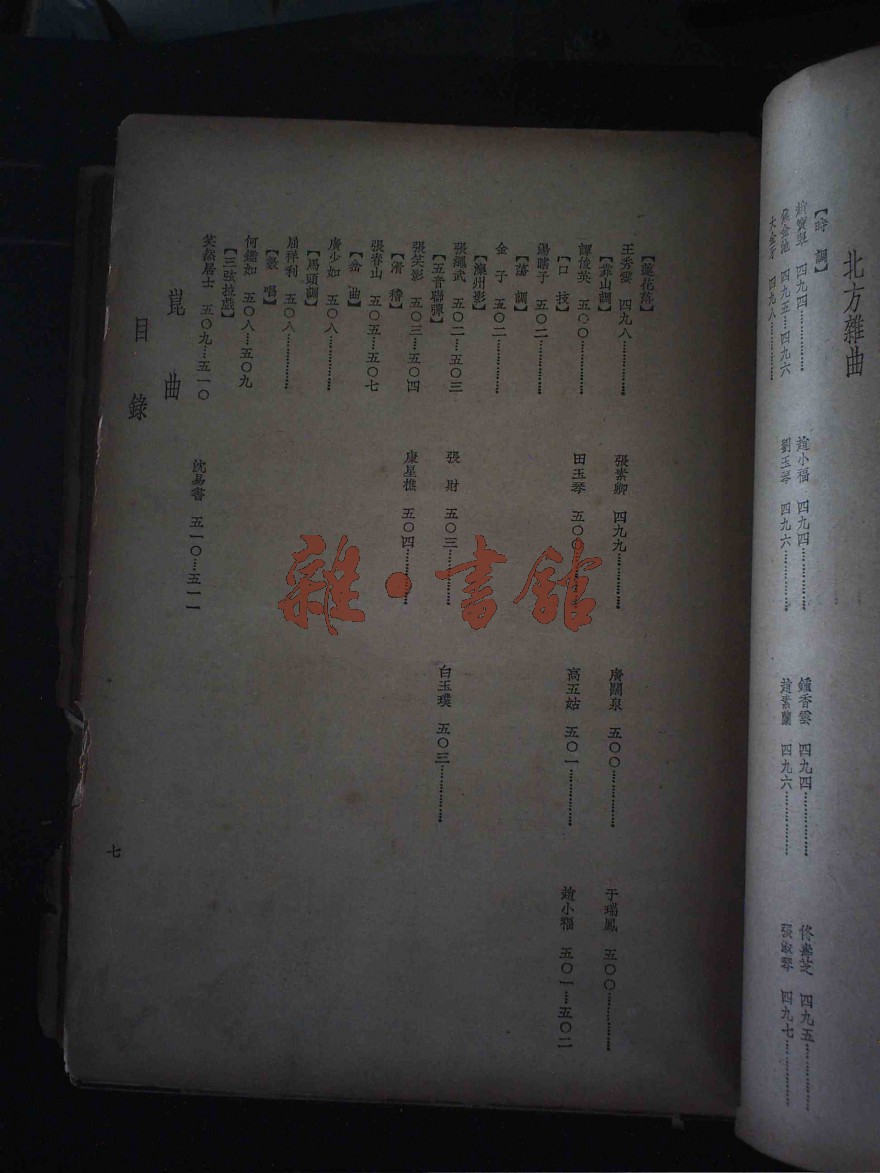 北方雜曲
【時調】
趙寶翠 四九四
趙小福 四九四
鍾香雲 四九四
佟壽芝 四九五
焦金池 四九五…四九六
劉玉琴 四九六
趙素蘭 四九六
張淑琴 四九七
大金牙 四九八
【蓮花落】
王秀雲 四九八
張素卿 四九九
廣闊泉 五〇〇
于瑞鳳 五〇〇
【靠山調】
譚俊英 五〇〇
田玉琴 五〇
高五姑 五〇一
趙小福 五〇一…五〇二
【口技】
湯瞎子 五〇二
【蕩調】
金子 五〇二
【灤州影】
張繩武 五〇二…五〇三
張財 五〇三
白玉璞 五〇三
【五音聯彈】
張笑影 五〇三…五〇四
康星樵 五〇四
【滑稽】
張春山 五〇五…五〇七
【岔曲】
廣少如 五〇八
【馬頭調】
屈祥利 五〇八
【數唱】
何鑑如 五〇八…五〇九
【三弦拉戲】
笑然居士 五〇九…五一〇
沈易書 五一〇…五一一
崑曲
目錄
七
雜·書館